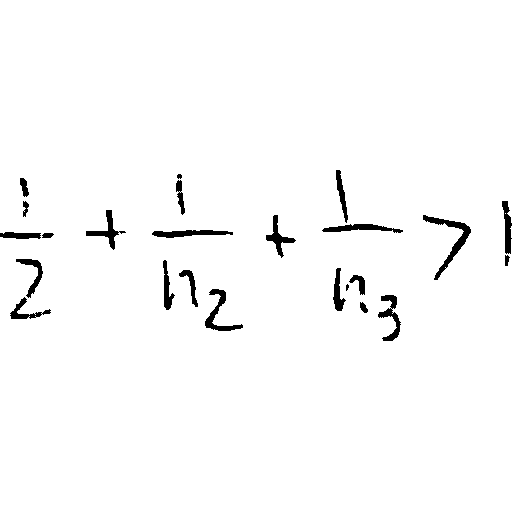 \frac{1}{2} + \frac{1}{n_2} + \frac{1}{n_3} > 1